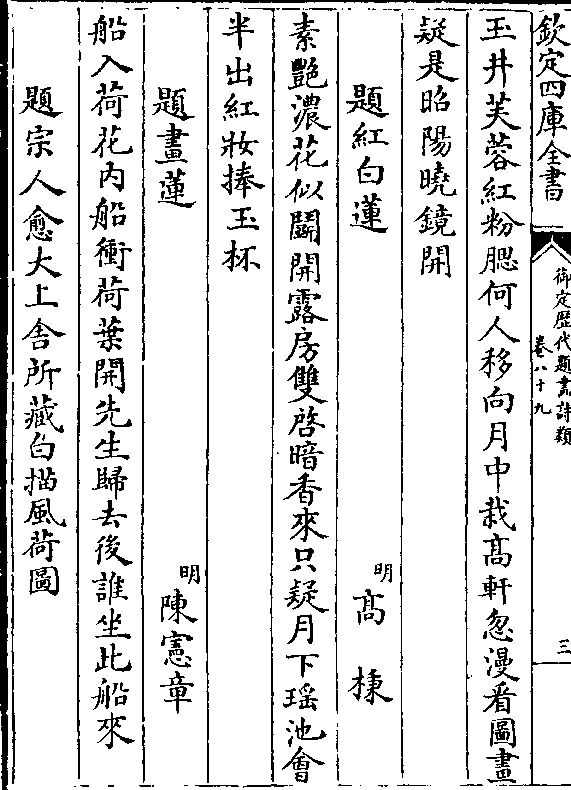 欽定四庫全書
御定歷代題畫詩類
卷八十九
三
玉井芙蓉紅粉腮何人移向月中栽高軒忽漫看圖畫
疑是昭陽曉鏡開
題紅白蓮
明
高棅
素艷濃花似鬬開露房雙啓暗香來只疑月下瑶池會
半出紅妝捧玉杯
題畫蓮
明
陳憲章
船入荷花内船衝荷葉開先生歸去後誰坐此船來
題宗人愈大上舍所藏白描風荷圖